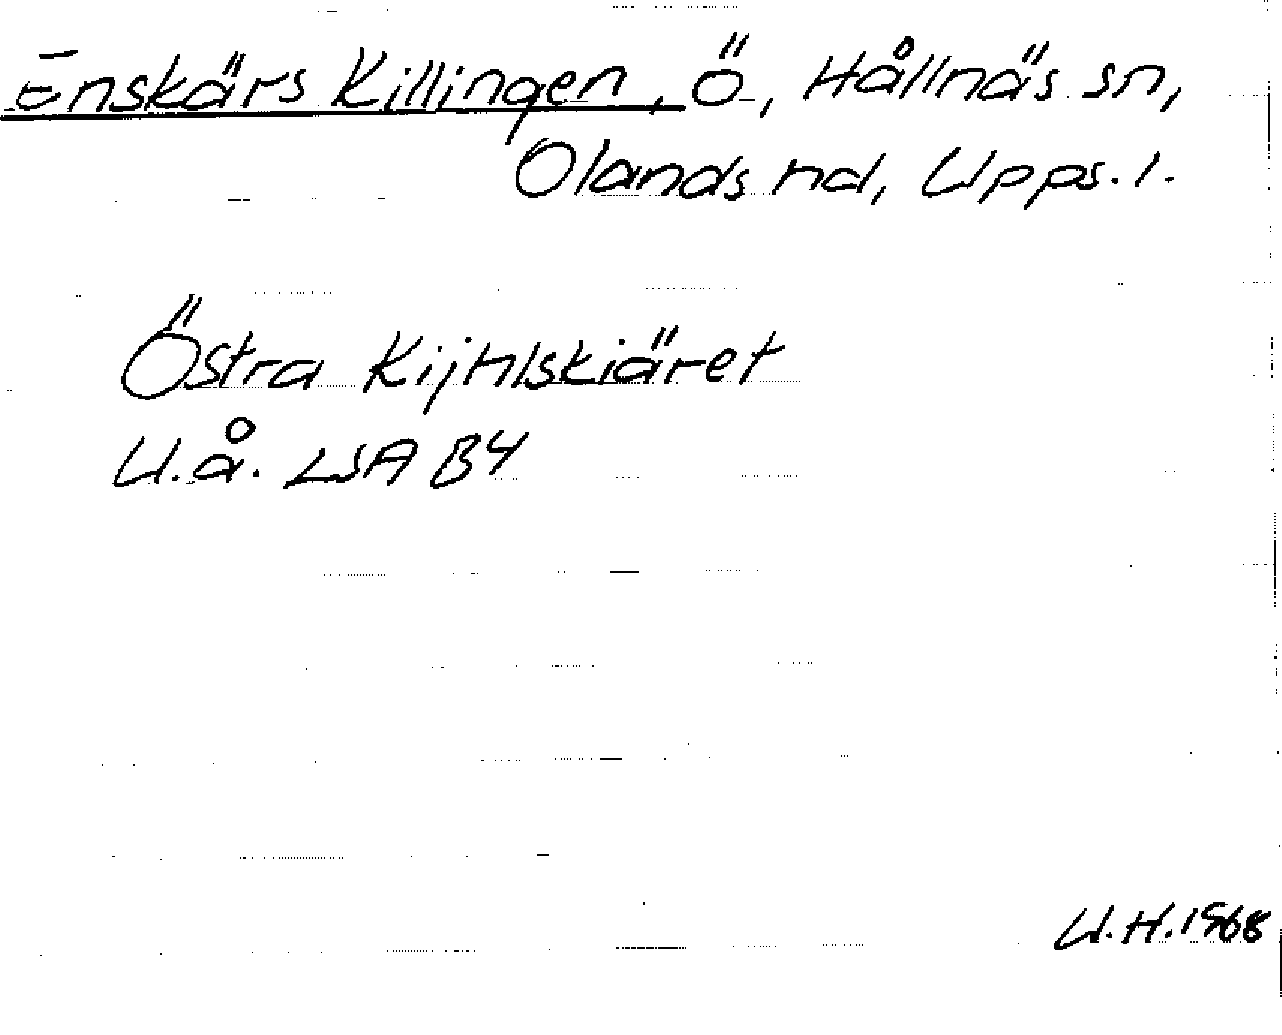 Enskärs Killingen, ö, Hållnäs sn,
Olands hd, Upps. l.
Östra Kijhlskiäret
U.å. LSA B4
U.H. 1968